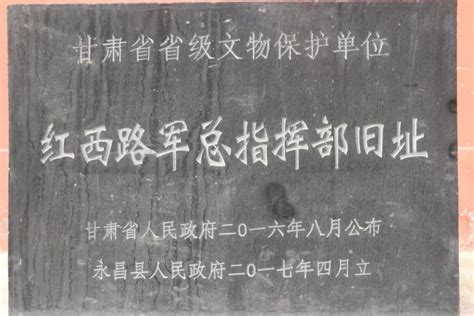 甘肃省省级文物保护单位
红西路军总指挥部旧址
甘肃省人民政府二0一六年八月公布
永昌县人民政府二0一七年四月立